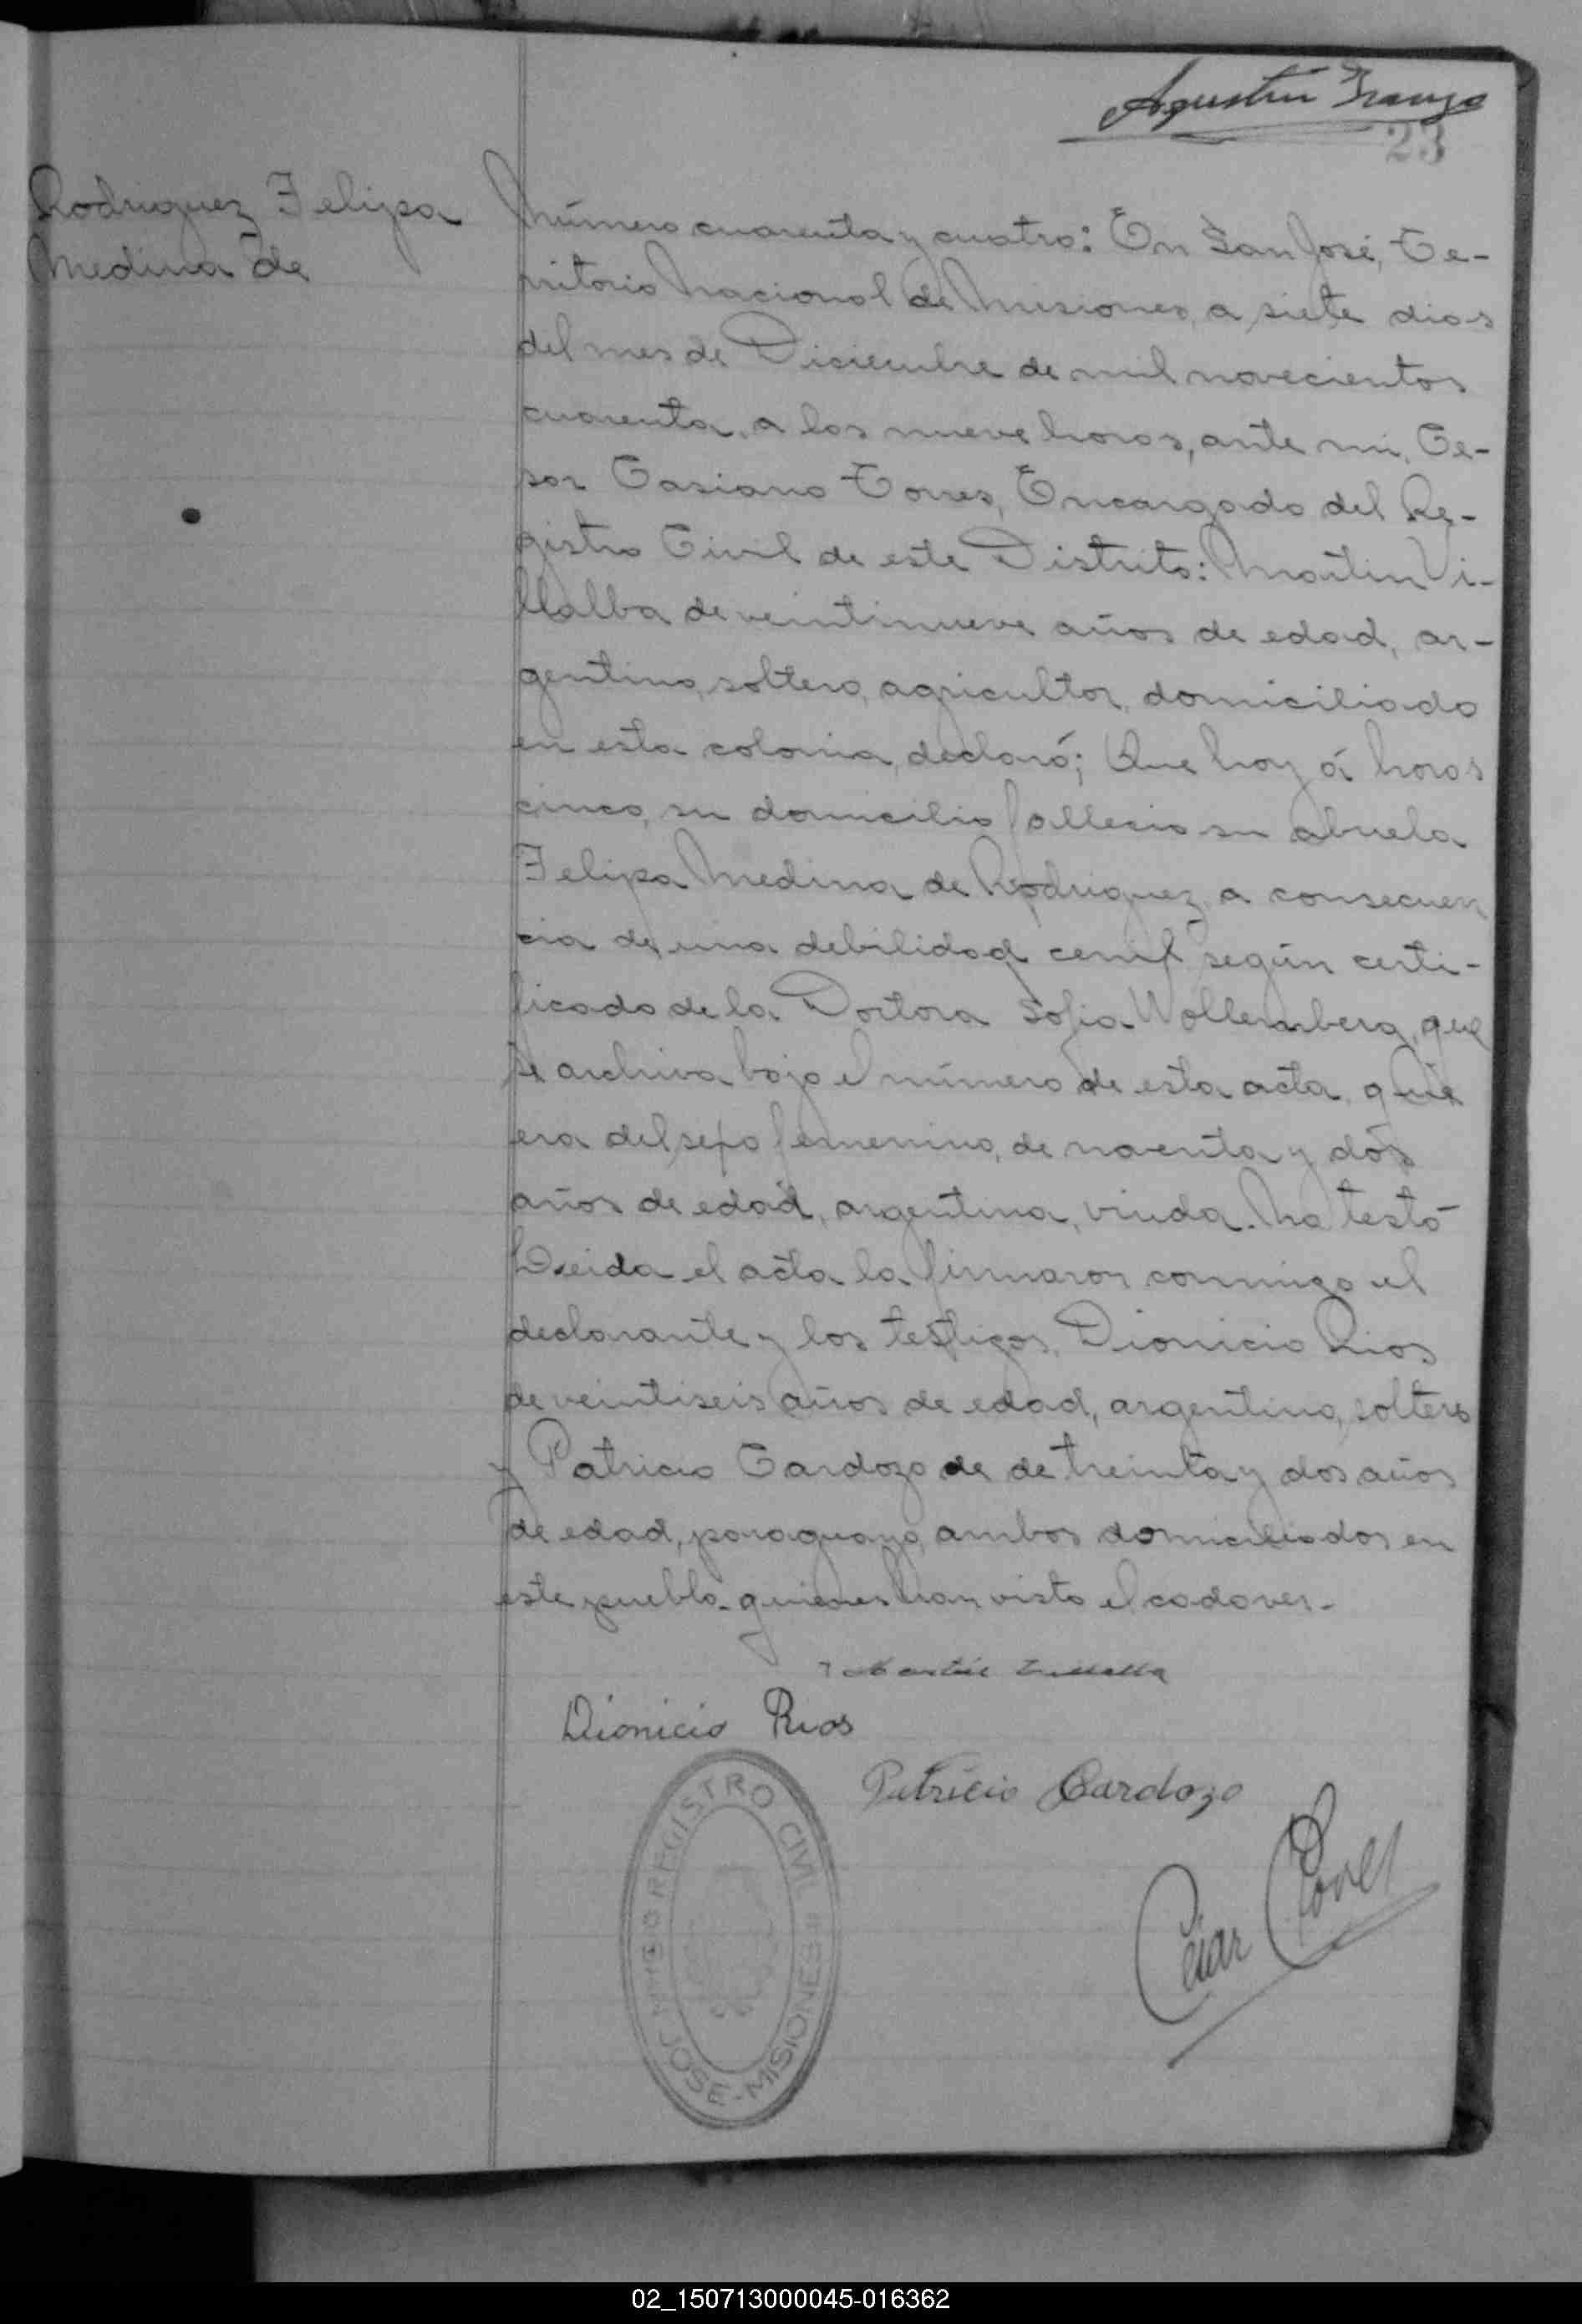 Agustín
23
Rodriguez Felipa
Medina de
Número cuarenta y cuatro: En San José, Te-
rritorio Nacional de Misiones, a siete dias
del mes de Diciembre de mil novecientos
cuarenta, a las nueve horas, ante mi, Ce-
sar Casiano Torres, Encargado del Re-
gistro Civil de este Distrito: Martin Vi-
llalba de veintinueve años de edad, ar-
gentino, soltero, agricultor, domiciliado
en esta colonia, declaró; Que hoy á horas
cinco, su domicilio fallecio su abuela
Felipa Medina de Rodriguez, a consecuen
cia de una debilidad cenil según certi-
ficado de la Doctora Sofia Wollemberg, que
se archiva bajo el número de esta acta, que
era del sexo femenino, de noventa y dos
años de edad, argentina, viuda. No testó
Leida el acta la firmaron conmigo el
declarante y los testigos, Dionicio Rios
de veintiseis años de edad, argentino, soltero
y Patricio Cardozo de de treinta y dos años
de edad, paraguayo, ambos domiciliados en
este pueblo quienes han visto el cadaver.-
Martin Villalba
Dionicio Rios
Patricio Cardozo
Cesar Torres
REGISTRO CIVIL
JOSE - MISIONES
02_150713000045-016362